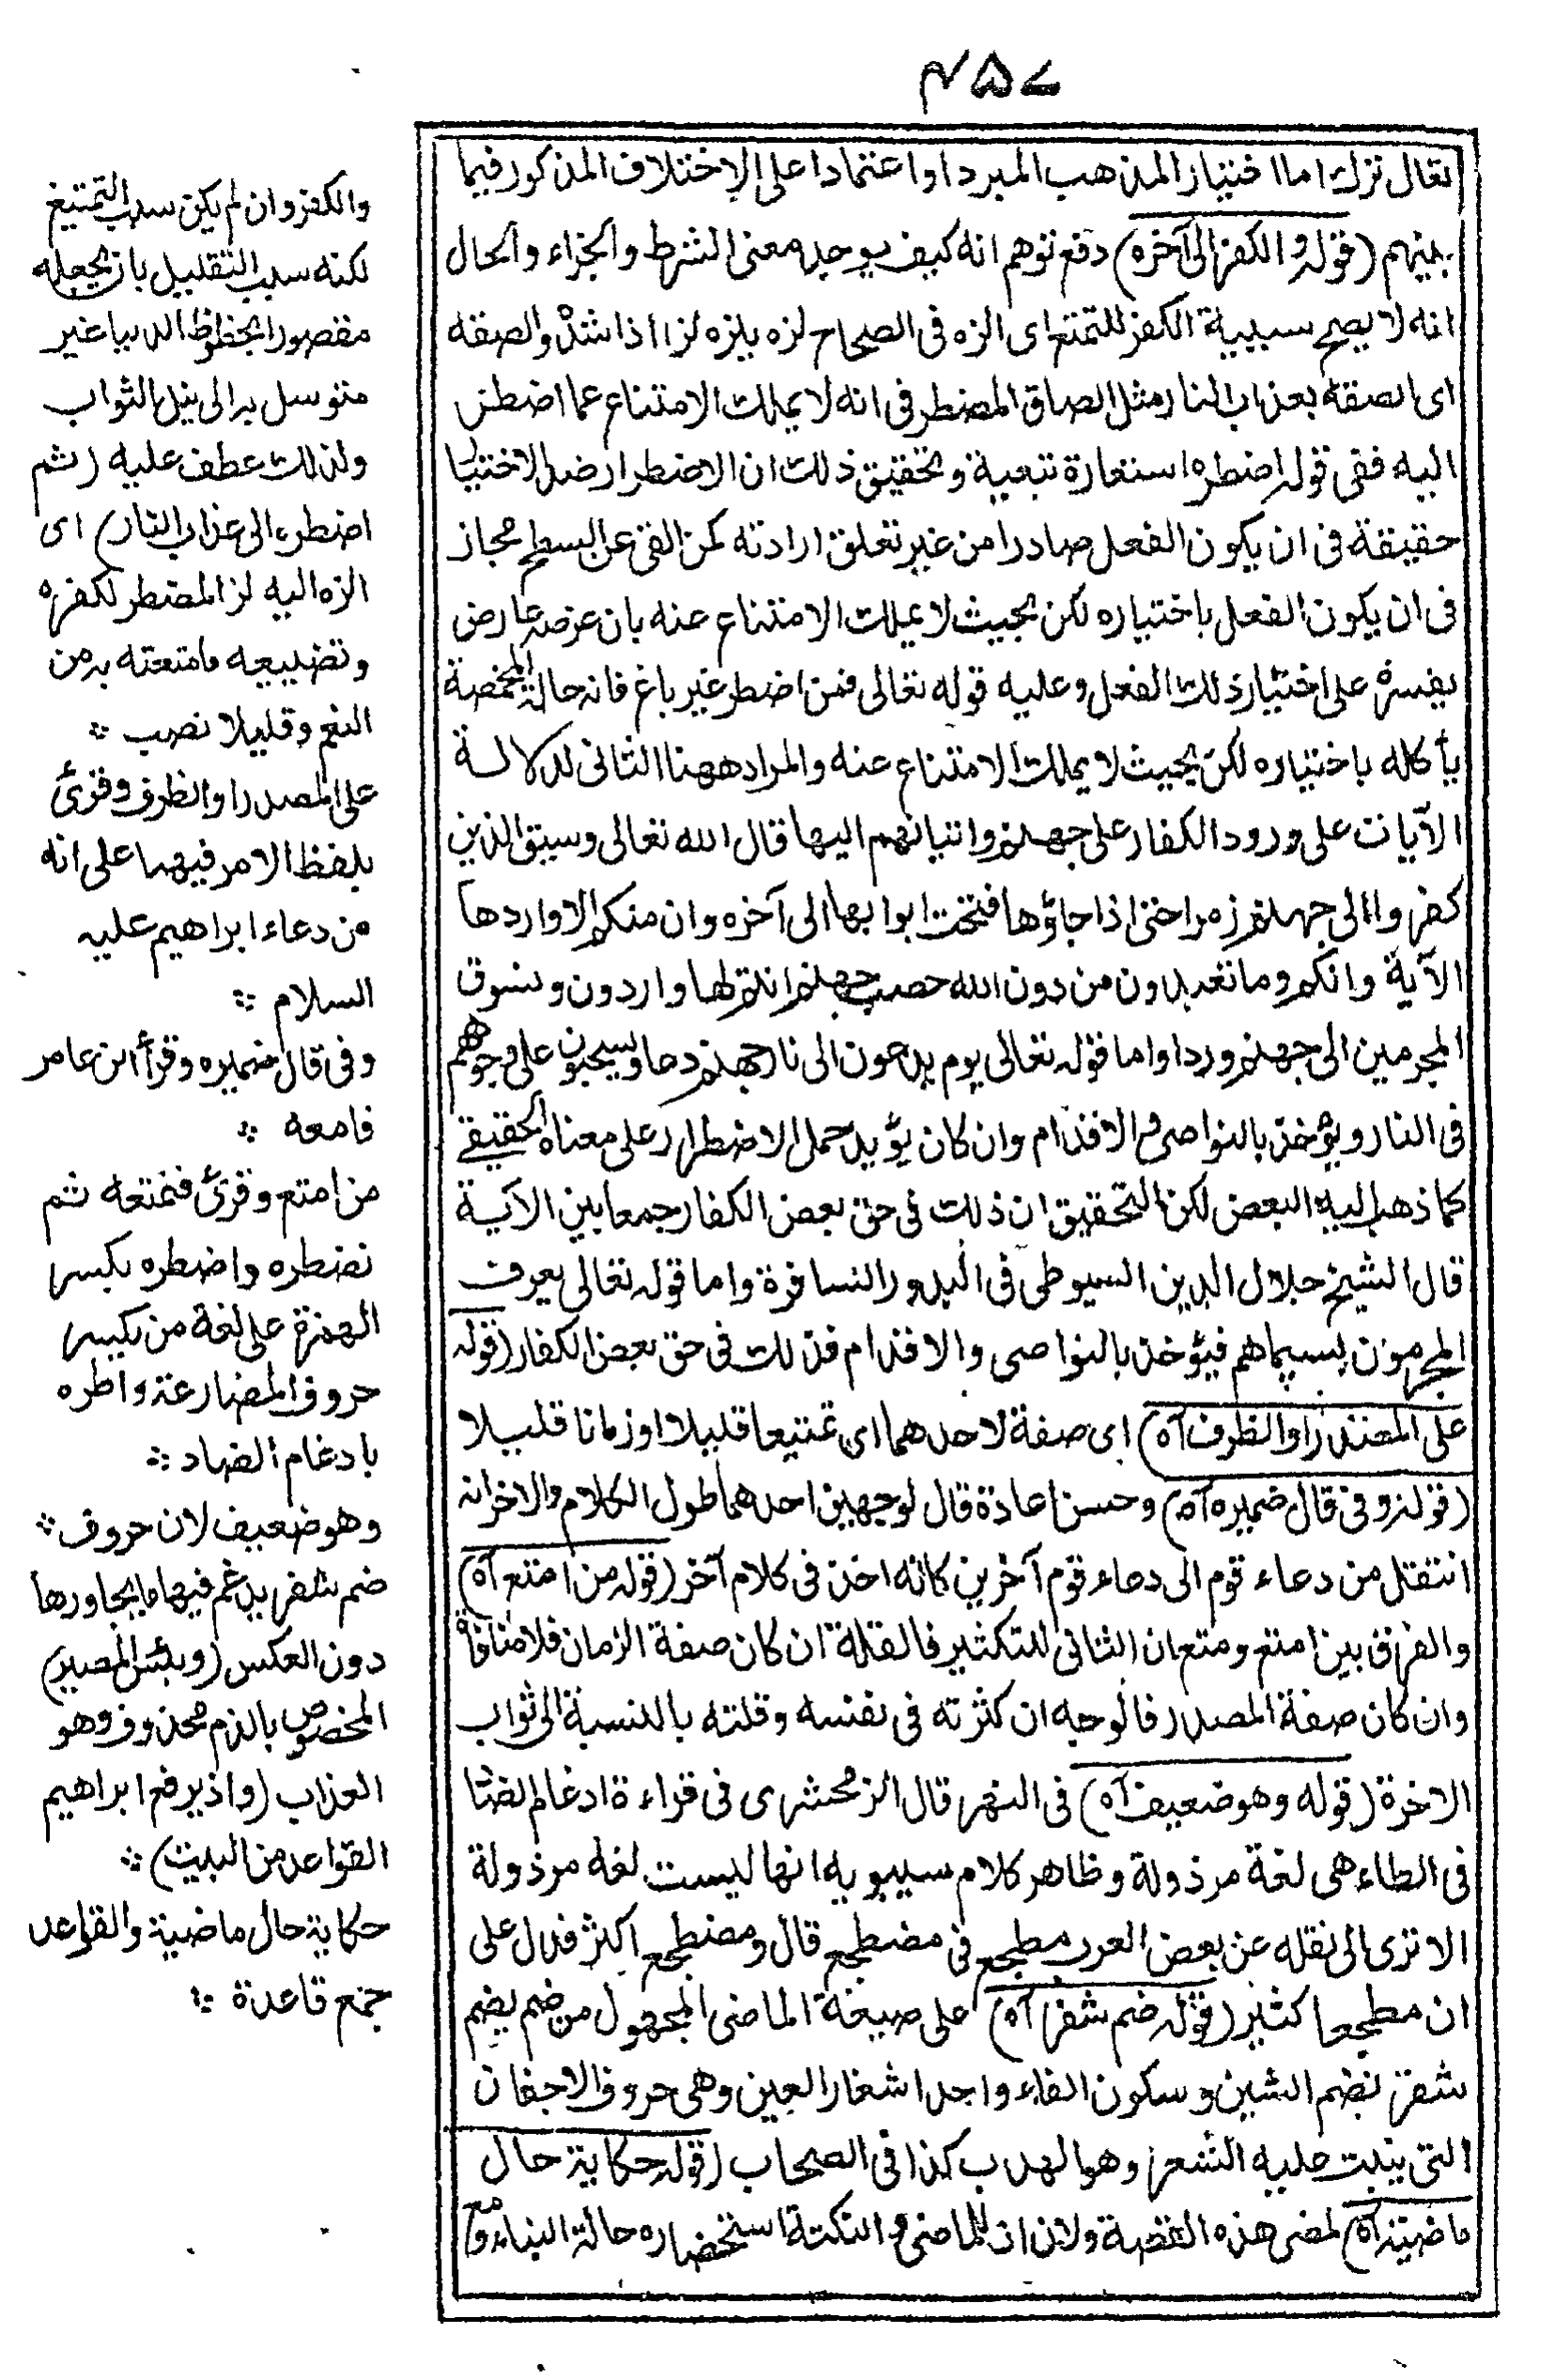 ٤٥٧
تعالى ترك اما اختيار المذهب المبرد او اعتمادا على الاختلاف المذكور فيما
بينهم (قوله والكفر الى آخره) دفع توهم انه كيف يوجد معنى الشرط والجزاء والحال
انه لا يصح سببية الكفر للتمتع اى الزه فى الصحاح لزه يلزه لزا اذا شده والصقه
اى الصقه بعذاب النار مثل الصاق المضطر فى انه لا يملك الامتناع عما اضطر
اليه ففى قوله اضطره استعارة تبعية وتحقيق ذلك ان الاضطرار ضد الاختيار
حقيقة فى ان يكون الفعل صادرا من غير تعلق ارادته كمن القى عن السطح مجاز
فى ان يكون الفعل باختياره لكن بحيث لا يملك الامتناع عنه بان عرضه عارض
يقسره على اختيار ذلك الفعل وعليه قوله تعالى فمن اضطر غير باغ فانه حالة المخمصة
يأكله باختياره لكن بحيث لا يملك الامتناع عنه والمراد ههنا الثانى لدلالة
الآيات على ورود الكفار على جهنم واتيانهم اليها قال الله تعالى وسيق الذين
كفروا الى جهنم زمرا حتى اذا جاؤها فتحت ابوابها الى آخره وان منكم الا واردها
الآية وانكم وما تعبدون من دون الله حصب جهنم انتم لها واردون ونسوق
المجرمين الى جهنم وردا واما قوله تعالى يوم يدعون الى نار جهنم دعا ويسحبون على وجوههم
فى النار ويؤخذ بالنواصى والاقدام وان كان يؤيد حمل الاضطرار على معناه الحقيقے
كما ذهب اليه البعض لكن التحقيق ان ذلك فى حق بعض الكفار جمعا بين الآية
قال الشيخ جلال الدين السيوطى فى البدور السافرة واما قوله تعالى يعرف
المجرمون بسيماهم فيؤخذ بالنواصى والاقدام فذلك فى حق بعض الكفار (قوله
على المصدر او الظرف آه) اى صفة لاحدهما اى تمتيعا قليلا او زمانا قليلا
(قوله وفى قال ضميره آه) وحسن اعادة قال لوجهين احدهما طول الكلام والاخر انه
انتقل من دعاء قوم الى دعاء قوم آخرين كانه اخذ فى كلام آخر (قوله من امتع آه)
والفرق بين امتع ومتع ان الثانى للتكثير فالقلة ان كان صفة الزمان فلا منافاة
وان كان صفة المصدر فالوجه ان كثرته فى نفسه وقلته بالنسبة الى ثواب
الاخرة (قوله وهو ضعيف آه) فى النهر قال الزمخشرى فى قراءة ادغام الضاد
فى الطاء هى لغة مرذولة وظاهر كلام سيبويه انها ليست لغة مرذولة
الا ترى الى نقله عن بعض العرب مطجع فى مضطجع قال ومضطجع اكثر فدل على
ان مطجعا كثير (قوله ضم شفر آه) على صيغة الماضى المجهول من ضم يضم
شفر بضم الشين وسكون الفاء واحد اشفار العين وهى حروف الاجفان
التى ينبت عليه الشعر وهو الهدب كذا فى الصحاب (قوله حكاية حال
ماضية آه) لمضى هذه القصة ولان اذ للماضى والنكتة استحضاره حالة البناء مع
والكفر وان لم يكن سبب التمتيع
لكنه سبب التقليل بان يجعله
مقصورا بحظوظ الدنيا غير
متوسل به الى نيل الثواب
ولذلك عطف عليه (ثم
اضطره الى عذاب النار) اى
الزه اليه لز المضطر لكفره
وتضييعه ما متعته به من
النعم وقليلا نصب
على المصدر او الظرف وقرئ
بلفظ الامر فيهما على انه
من دعاء ابراهيم عليه
السلام
وفى قال ضميره وقرأ ابن عامر
فامتعه
من امتع وقرئ فنمتعه ثم
نضطره واضطره بكسر
الهمزة على لغة من يكسر
حروف المضارعة واطره
بادغام الضاد
وهو ضعيف لان حروف
ضم شفر يدغم فيها ما يجاورها
دون العكس (وبئس المصير)
المخصوص بالذم محذوف وهو
العذاب (واذ يرفع ابراهيم
القواعد من البيت)
حكاية حال ماضية والقواعد
جمع قاعدة